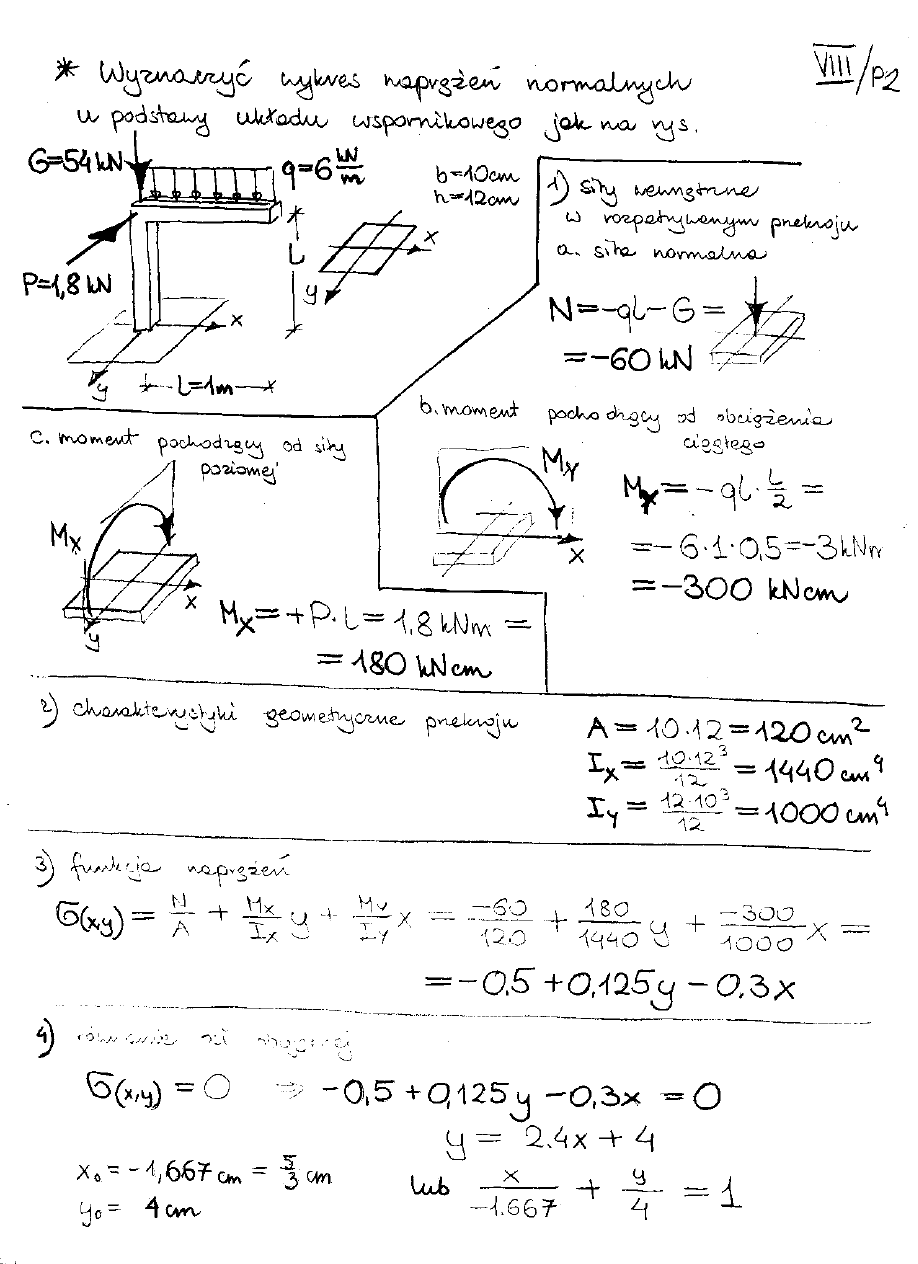 * Wyznaczyć wykres naprężeń normalnych
u podstawy układu wspornikowego jak na rys.
VIII/P2
G=54kN
q=6 kN/m
b=10cm
h=12cm
P=1,8 kN
L
x
y
x
y
L=1m
1) siły wewnętrzne
w rozpatrywanym przekroju
a. siła normalna
N=-ql-G=
=-60 kN
b. moment pochodzący od obciążenia
ciągłego
My
x
My=-ql·L/2=
=-6·1·0,5=-3kNm
=-300 kNcm
c. moment pochodzący od siły
poziomej
Mx
x
y
Mx=+P·L=1,8 kNm=
=180 kNcm
2) charakterystyki geometryczne przekroju
A=10·12=120cm²
Ix=10·12³/12=1440cm⁴
Iy=12·10³/12=1000cm⁴
3) funkcja naprężeń
σ(x,y)=N/A+Mx/Ix y+My/Iy x=-60/120+180/1440 y+-300/1000 x=
=-0,5+0,125y-0.3x
4) równanie osi obojętnej
σ(x,y)=0 ⇒ -0,5+0,125y-0,3x=0
y=2.4x+4
x₀=-1,667cm=5/3 cm
y₀=4cm
lub x/-1.667+y/4=1